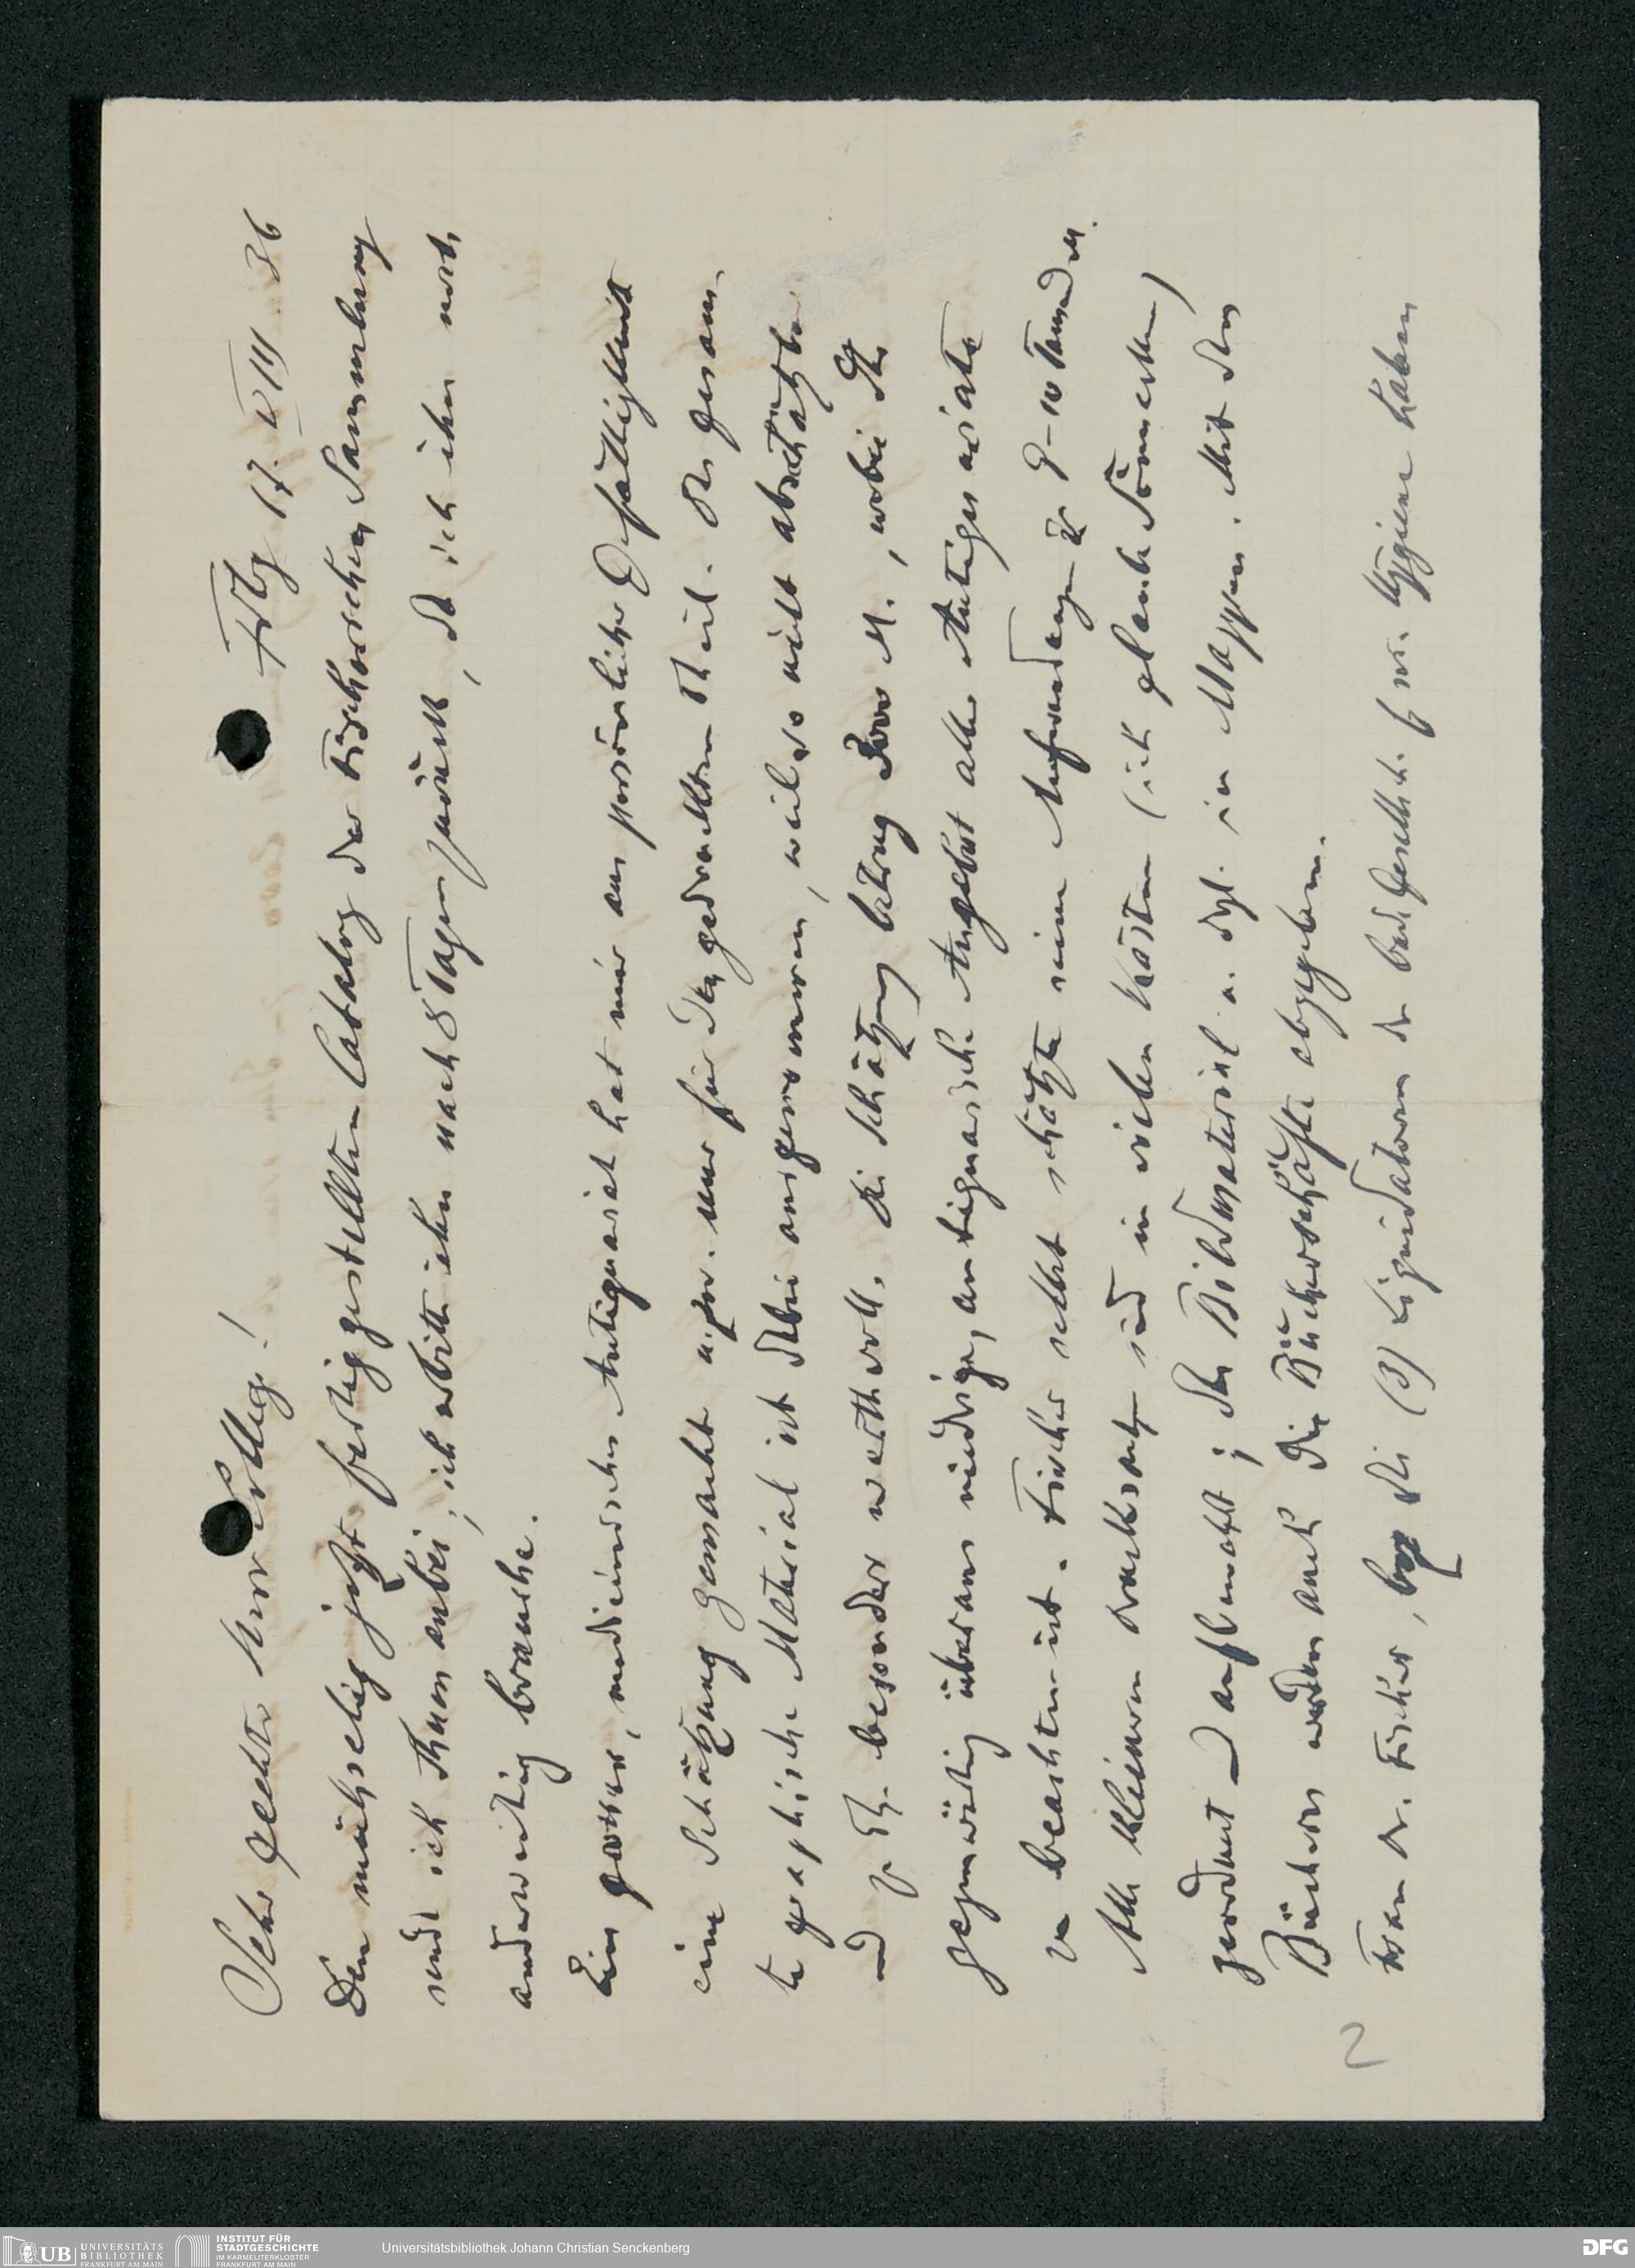 Frbg 17. VIII 36
Sehr geehrter Herr Kolleg!
Den mühselig jetzt fertiggestellten Catalog der Fischerschen Sammlung
sende ich Ihnen anbei; ich erbitte ihn nach 8 Tagen zurück, da ich ihn noch
anderweitig brauche.
Ein grosses, medicinisches Antiquariat hat mir aus persönlicher Gefälligkeit
eine Schätzung gemacht u. zw. nur für den gedruckten Theil. Das gesam-
te graphische Material ist dabei ausgenommen, weil so nicht abschätzbar
und z. Th. besonders werthvoll. Die Schätzung betrug M., wobei das
gegenwärtig überaus niedrige, antiquarische Angebot aller Antiquariate
zu beachten ist. Fischer selbst schätzte seine Aufwendungen 9-10 Tausend M.
Alle kleineren Drucksachen sind in vielen Kästen (ich glaube Sömmecken)
geordnet und aufbewahrt; das Bildmaterial u. dgl. in Mappen. Mit den
Büchern werden auch die Bücherschäfte abgegeben.
Frau Dr. Fischer, bezw die (3) Liquidatoren der bad. Gesellsch. f soz. Hygiene haben
2
UB UNIVERSITÄTS
BIBLIOTHEK
FRANKFURT AM MAIN
INSTITUT FÜR
STADTGESCHICHTE
IM KARMELITERKLOSTER
FRANKFURT AM MAIN
Universitätsbibliothek Johann Christian Senckenberg
DFG